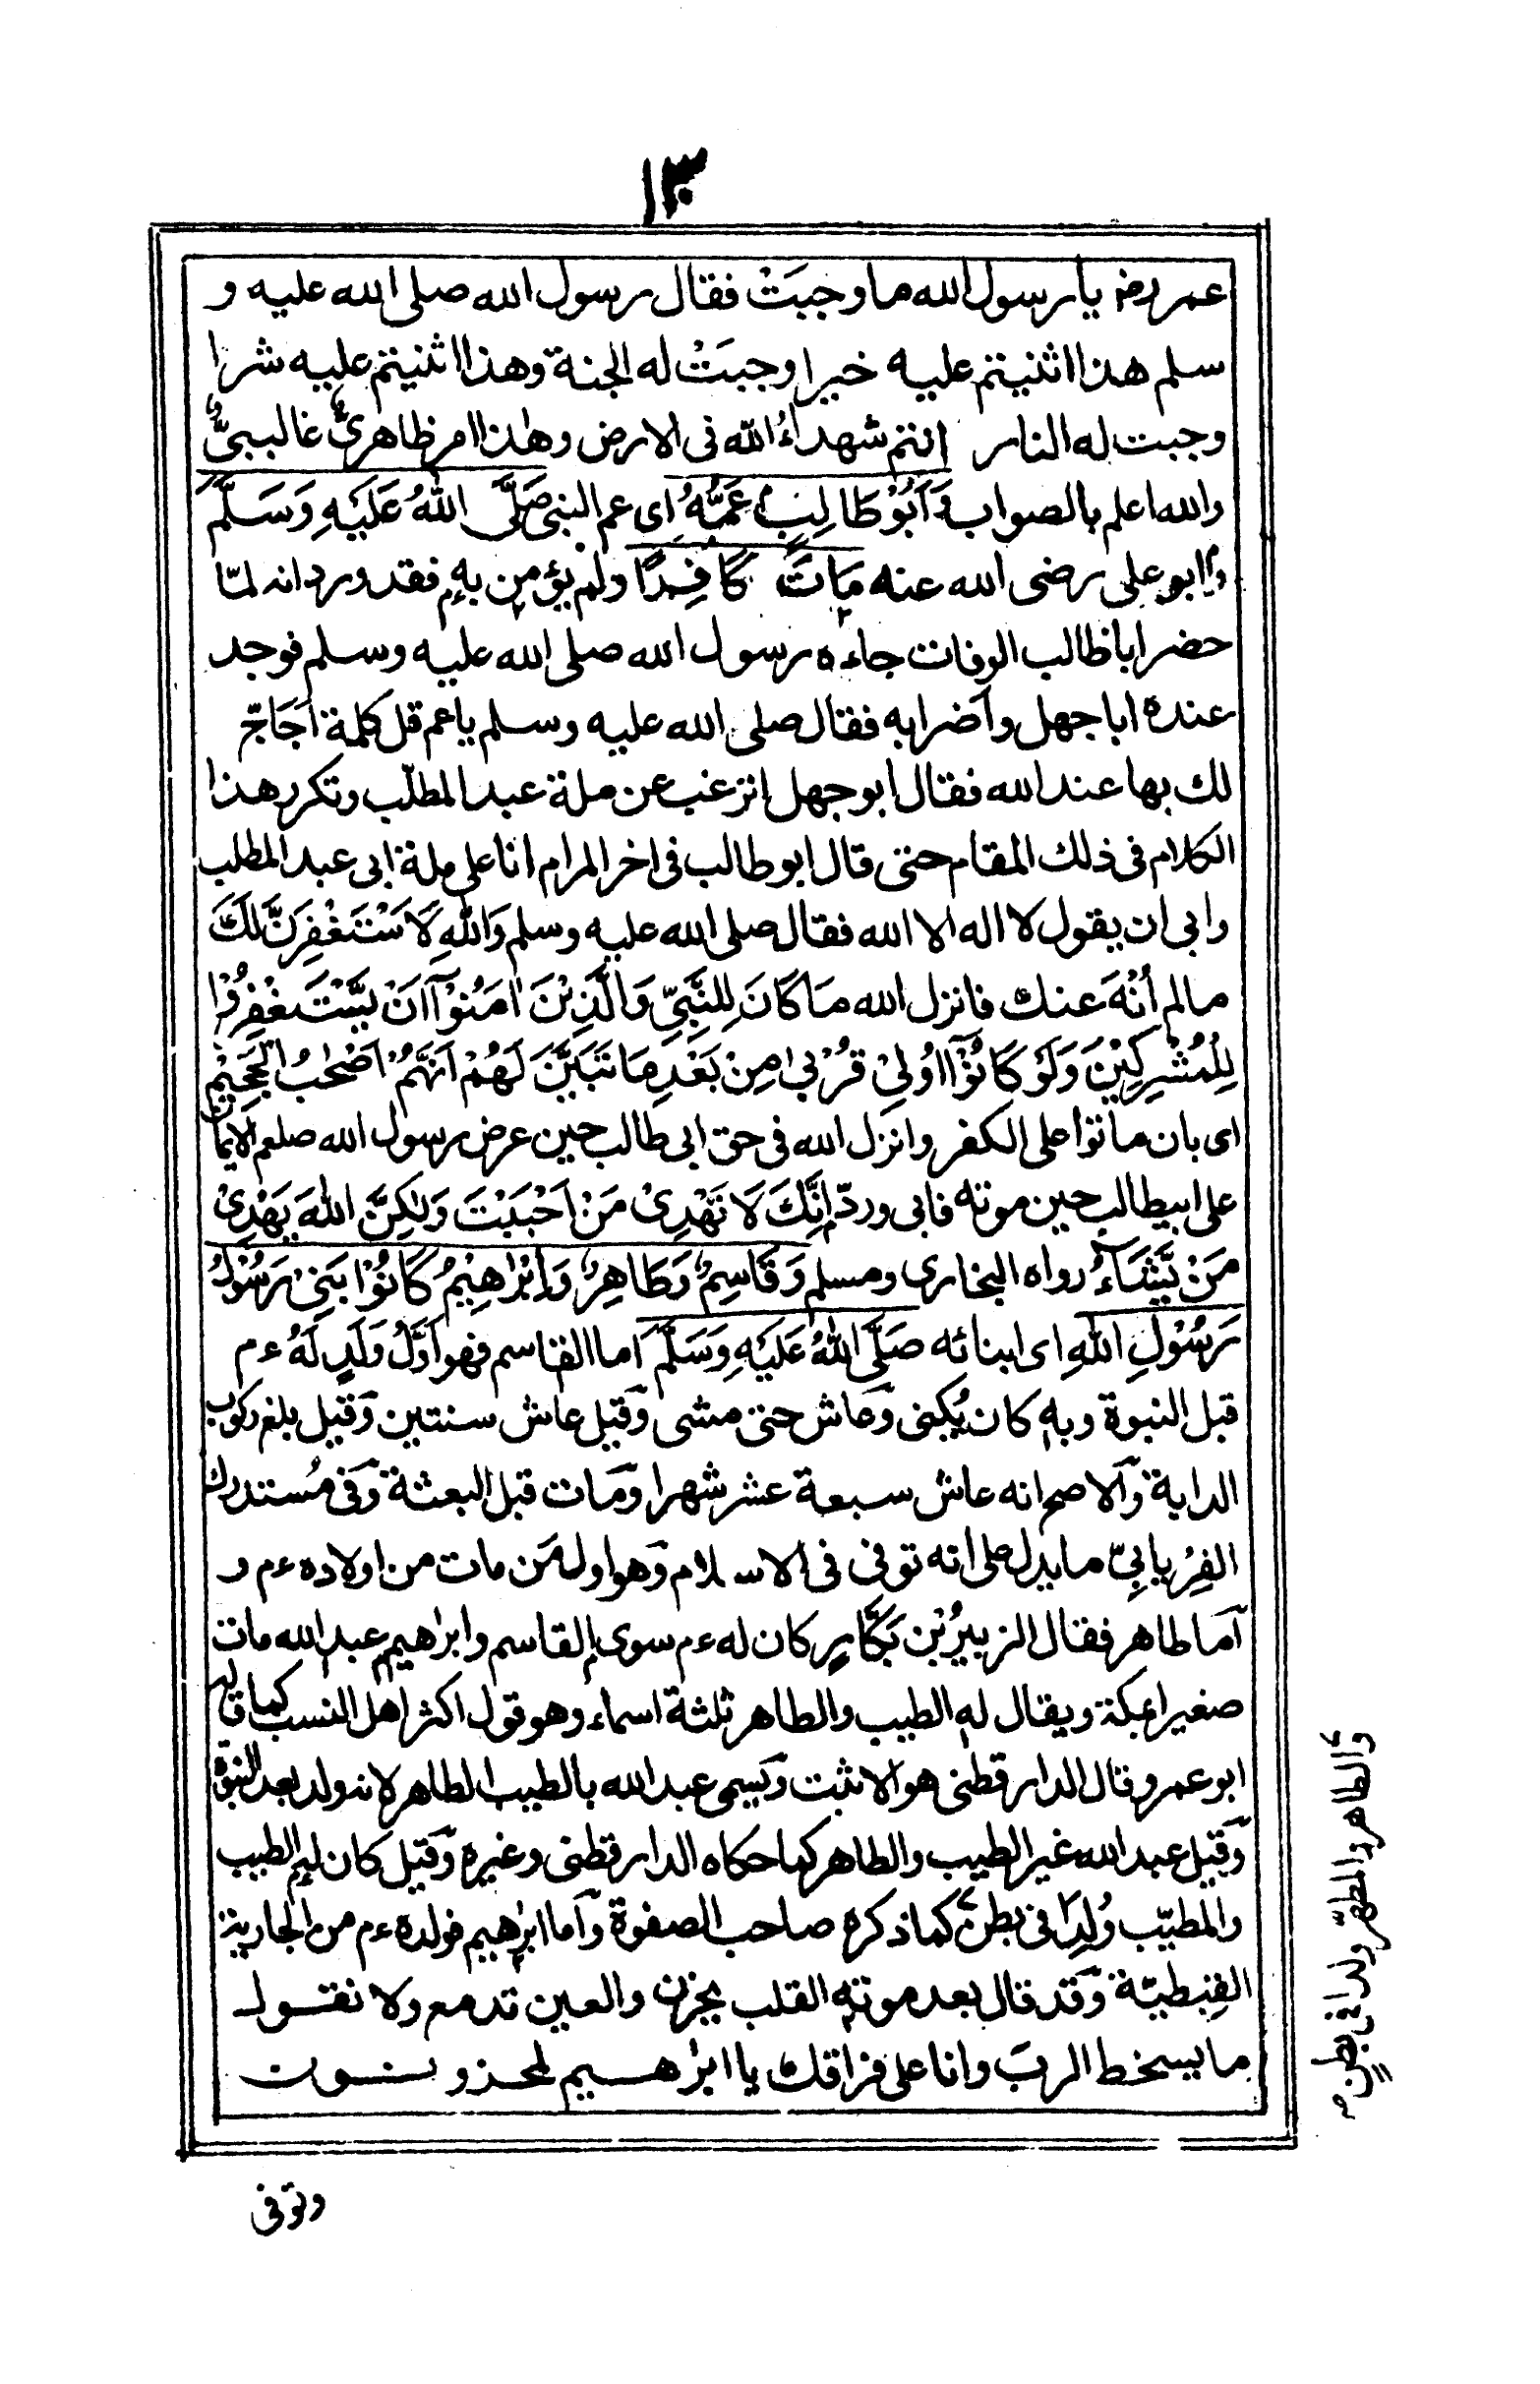 ١٣٠
عمر رضـ يا رسول الله ما وجبَتْ فقال رسول الله صلى الله عليه و
سلم هذا اثنيتم عليه خيرا وجبَتْ له الجنة وهذا اثنيتم عليه شرا
وجبت له النار انتم شهداءُ الله فى الارض وهذا امر ظاهرىٌّ غالبىٌّ
والله اعلم بالصواب وَاَبُوْ طَالِبٍ عَمُّهُ اى عم النبى صَلَّى اللهُ عَلَيْهِ وَسَلَّمَ
وابو على رضى الله عنه مَاتَ كَافِرًا ولم يؤمن به فقد ورد انه لمّا
حضر اباطالب الوفات جاءه رسول الله صلى الله عليه وسلم فوجد
عنده اباجهل واضرابه فقال صلى الله عليه وسلم ياعم قل كلمة اُحَاجّ
لك بها عند الله فقال ابوجهل اترغب عن ملة عبد المطلب وتكرر هذا
الكلام فى ذلك المقام حتى قال ابوطالب فى اخر المرام انا على ملة ابى عبد المطلب
وابى ان يقول لا اله الا الله فقال صلى الله عليه وسلم وَاللهِ لَاَسْتَغْفِرَنَّ لَكَ
مالم اُنْهَ عنك فانزل الله مَا كَانَ لِلنَّبِيِّ وَالَّذِيْنَ اٰمَنُوْآ اَنْ يَّسْتَغْفِرُوْا
لِلْمُشْرِكِيْنَ وَلَوْ كَانُوْآ اُولِىْ قُرْبٰى مِنْ بَعْدِ مَا تَبَيَّنَ لَهُمْ اَنَّهُمْ اَصْحٰبُ الْجَحِيْمِ
اى بان ماتوا على الكفر وانزل الله فى حق ابى طالب حين عرض رسول الله صلعم الايمان
على ابيطالب حين موته فابى وردّ اِنَّكَ لَا تَهْدِىْ مَنْ اَحْبَبْتَ وَلٰكِنَّ اللهَ يَهْدِىْ
مَنْ يَّشَآءُ رواه البخارى ومسلم وَقَاسِمٌ وَطَاهِرٌ وَاِبْرٰهِيْمُ كَانُوْا بَنِىْ رَسُوْلِ
رَسُوْلِ اللهِ اى ابنائه صَلَّى اللهُ عَلَيْهِ وَسَلَّمَ اما القاسم فهو اَوَّلُ وَلَدٍ لَهُ ءم
قبل النبوة وبه كان يُكنى وعاش حتى مشى وقيل عاش سنتين وقيل بلغ ركوب
الدابة والاصح انه عاش سبعة عشر شهرا ومات قبل البعثة وفى مُستدرك
الفِرْيابِىّ ما يدل على انه توفى فى الاسلام وهو اول مَن مات من اولاده ءم و
اما طاهر فقال الزبيرُ بْن بَكَّارٍ كان له ءم سوى القاسم وابرٰهيم عبد الله مات
صغيرا بمكة ويقال له الطيب والطاهر ثلثة اسماء وهو قول اكثر اهل النسب كما قاله
ابوعمر وقال الدارقطنى هو الاثبت ويسمى عبد الله بالطيب الطاهر لانه ولد بعد النبوة
وقيل عبد الله غير الطيب والطاهر كما حكاه الدارقطنى وغيره وقيل كان له الطيب
والمطيّب وُلِدَا فى بطنٍ كما ذكره صاحب الصفوة واما ابرٰهيم فولده ءم من الجارية
القِبطيّة وقد قال بعد موته القلب يحزن والعين تدمع ولا نقول
ما يسخط الربَ وانا على فراقك يا ابرٰهيم لمحزونون
والطاهر والمطهّر ولدا فى بطنٍ
وتوفى